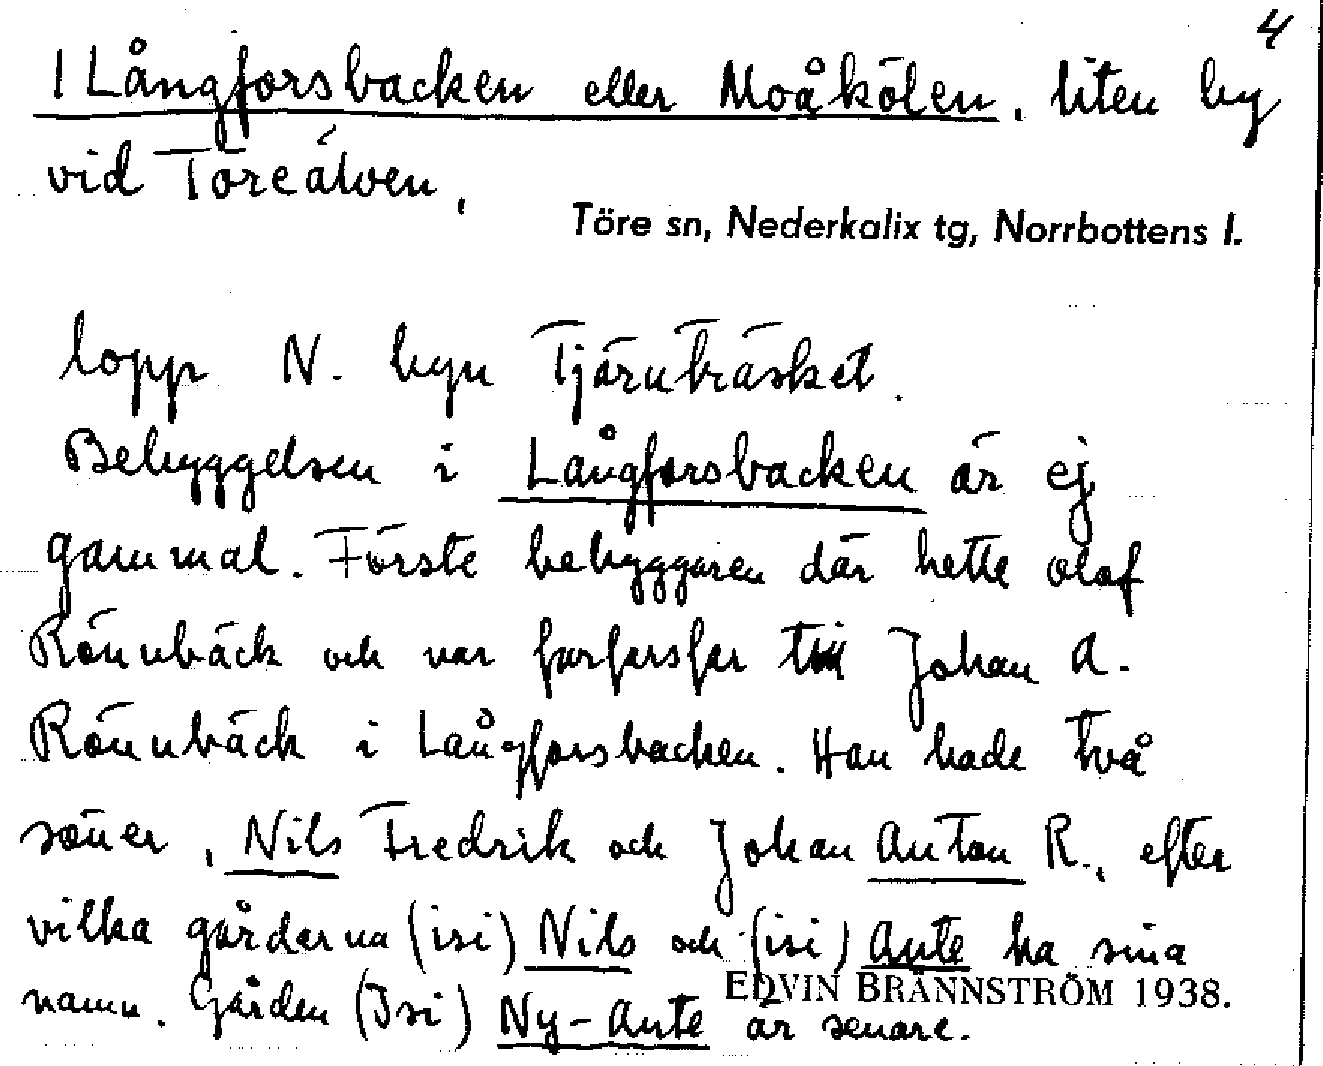 4
1 Långforsbacken eller Moåkölen, liten by
vid Töreälven,
Töre sn, Nederkalix tg, Norrbottens l.
lopp N. byn Tjärnträsket.
Bebyggelsen i Långforsbacken är ej
gammal. Förste bebyggaren där hette Olof
Rönnbäck och var farfarsfar till Johan A.
Rönnbäck i Långforsbacken. Han hade två
söner, Nils Fredrik och Johan Anton R., efter
vilka gårdarna (isi) Nils och (isi) Ante ha sina
namn. Gården (Isi) Ny-Ante är senare.
EDVIN BRÄNNSTRÖM 1938.